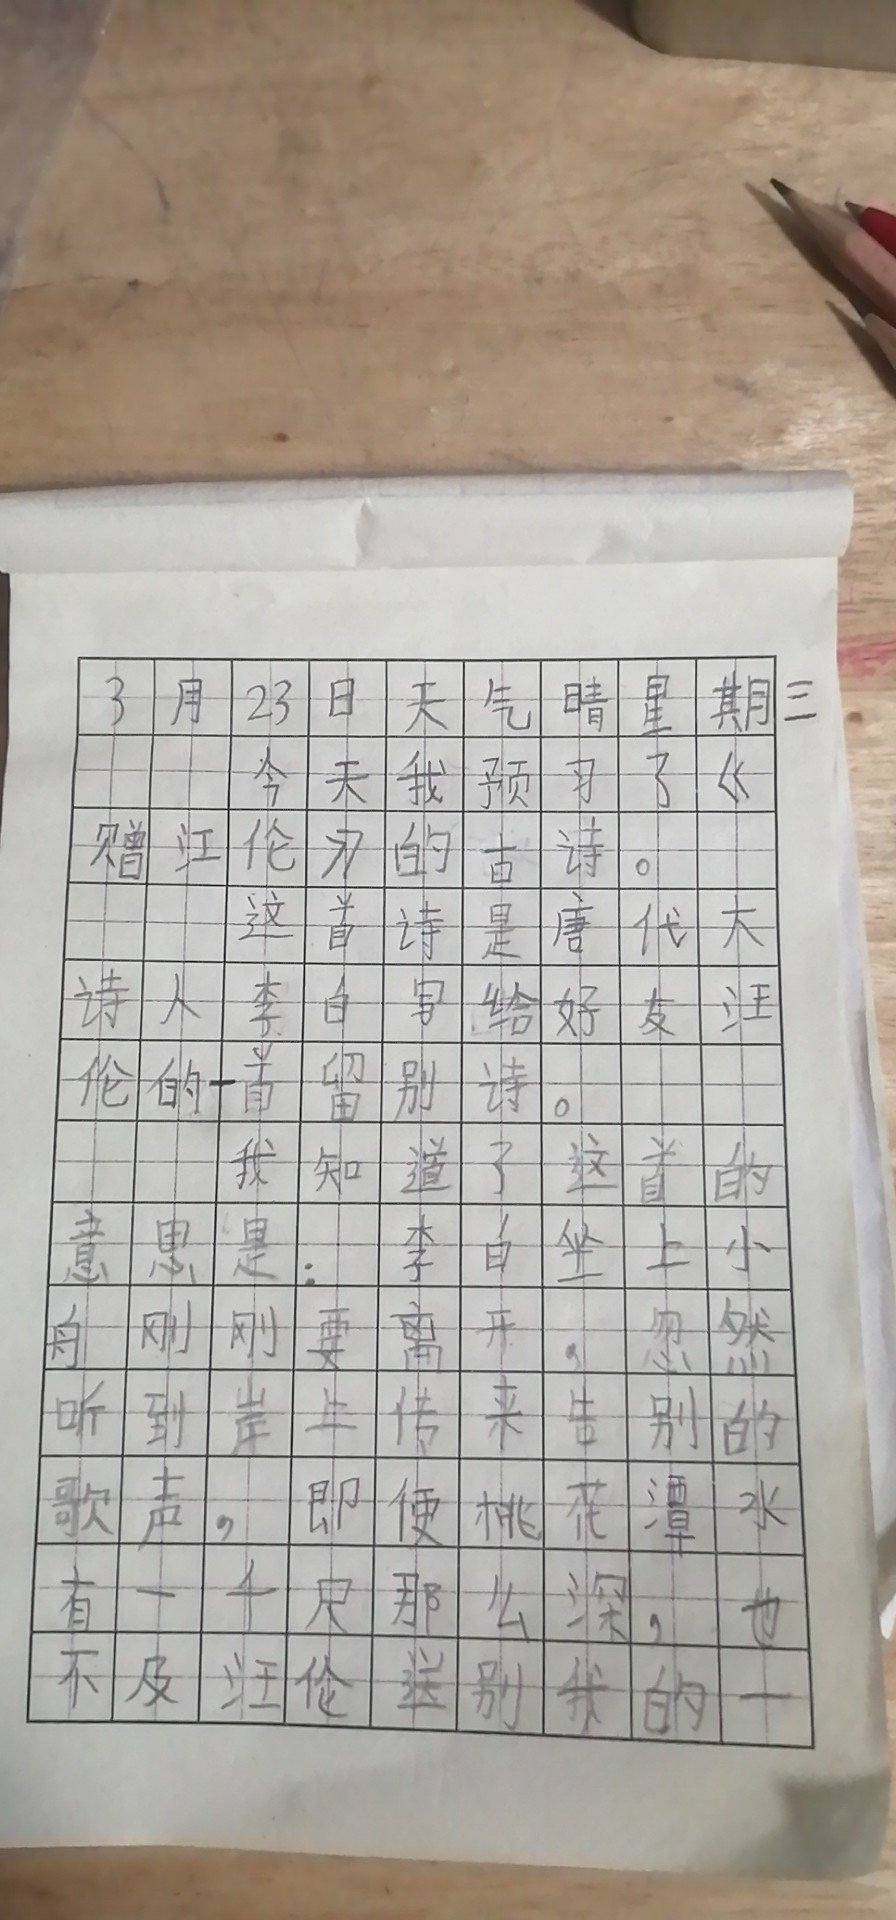 3月23日天气晴星期三
今天我预习了《
赠江伦》的古诗。
这首诗是唐代大
诗人李白写给好友汪
伦的一首留别诗。
我知道了这首的
意思是：李白坐上小
舟刚刚要离开，忽然
听到岸上传来告别的
歌声，即便桃花潭水
有一千尺那么深，也
不及汪伦送别我的一